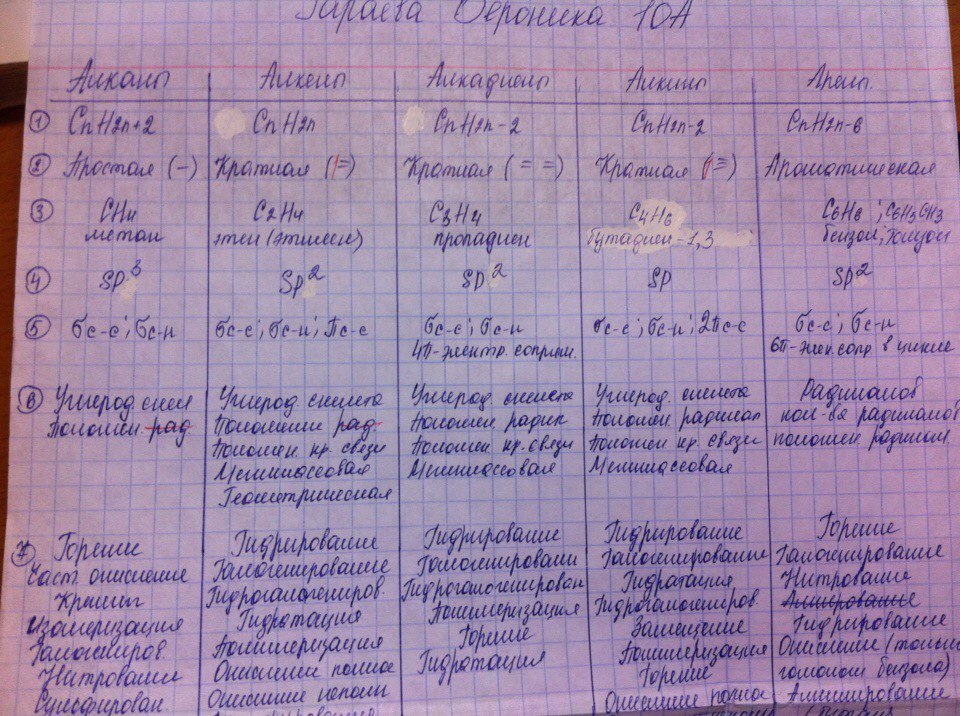 Гараева Вероника 10А
Алканы Алкены Алкадиены Алкины Арены.
① CnH2n+2 CnH2n CnH2n-2 CnH2n-2 CnH2n-6
② Простая (-) Кратная (=) Кратная (= =) Кратная (≡) Ароматическая
③ CH4 C2H4 C3H4 C4H6 C6H6 ; C6H5CH3
метан этен (этилен) пропадиен бутадиен-1,3 бензол; толуол
④ SP3 SP2 SP2 SP SP2
⑤ бс-с; бс-н бс-с; бс-н; Пс-с бс-с; бс-н бс-с; бс-н; 2Пс-с бс-с; бс-н
4П-электр. сопряж. 6П-элек. сопр. в цикле
⑥ Углерод. скел Углерод. скелета Углерод. скелета Углерод. скелета Радикалов
Положен. рад Положение рад. Положен. радик Положен. радикал кол-ва радикалов
Положен. кр. связи Положен. кр. связи Положен. кр. связи положен. радикал.
Межклассовая Межклассовая Межклассовая
Геометрическая
⑦ Горение Гидрирование Гидрирование Гидрирование Горение
Част. окисление Галогенирование Галогенировани Галогенирование Галогенирование
Крекинг Гидрогалогениров. Гидрогалогенирован Гидратация Нитрование
Изомеризация Гидратация Полимеризация Гидрогалогениров. Алкирование
Галогениров. Полимеризация Горение Замещение Гидрирование
Нитрование Окисление полное Гидратация Полимеризация Окисление (только
Сульфирован. Окисление неполн Горение гомологи бензола)
Окисление полное Алкилирование